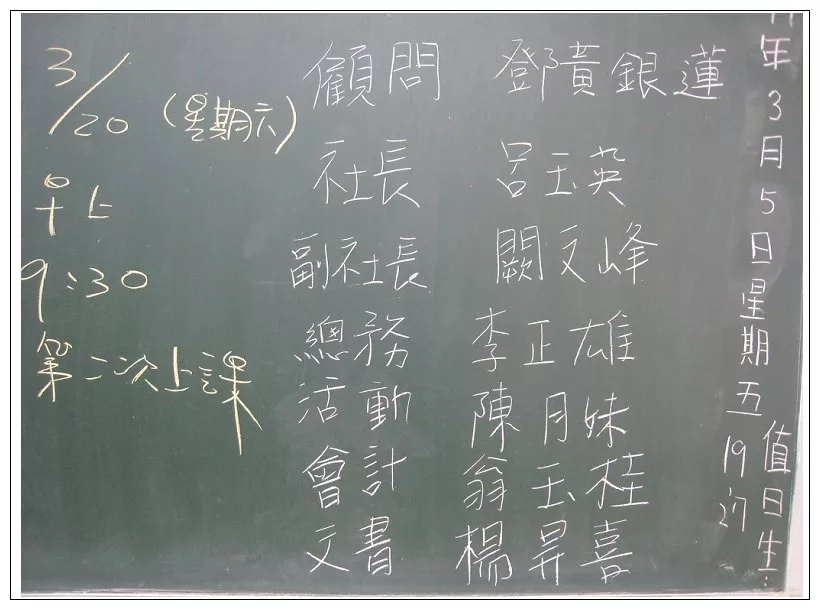 3/20 (星期六)
早上
9:30
第二次上課
顧問 鄧黃銀蓮
社長 呂玉英
副社長 闕文峰
總務 李正雄
活動 陳月妹
會計 翁玉桂
文書 楊昇喜
年3月5日星期五
值日生:
19、27